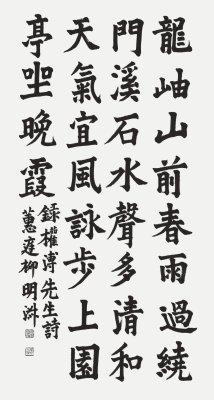 龍岫山前春雨過繞
門溪石水聲多清和
天氣宜風詠步上園
亭坐晚霞
錄權溥先生詩
蕙庭柳明洙